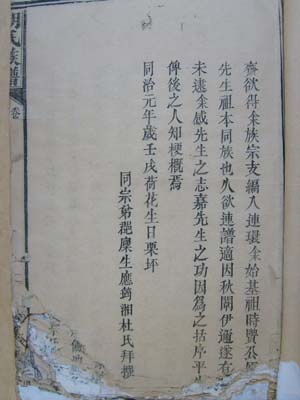 齊欲得余族宗支編入連環余始基祖時貴公原
先生祖本同族也久欲連譜適因秋闈伊邇遂有
未逮余感先生之志嘉先生之功因為之括序平生
俾後之人知梗概焉
同治元年歲壬戌荷花生日栗坪
同宗弟邑廩生應筠湘杜氏拜撰
氏族譜
卷